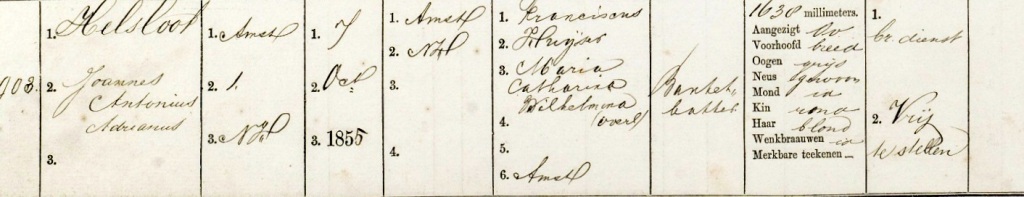 903.
1. Helsloot
2. Joannes
Antonius
Adrianus
3.
1. Amst
2. 1.
3. NH
1. 7
2. Oct
3. 1855
1. Amst
2. NH
3.
4.
1. Franciscus
2. Huyser
3. Maria
Catharina
Wilhelmina
4. (overl)
5.
6. Amst
Banket-
bakker
1638 millimeters.
Aangezigt ov
Voorhoofd breed
Oogen grijs
Neus gewoon
Mond id
Kin rond
Haar blond
Wenkbraauwen id
Merkbare teekenen
1.
br. dienst
2. Vrij
te stellen